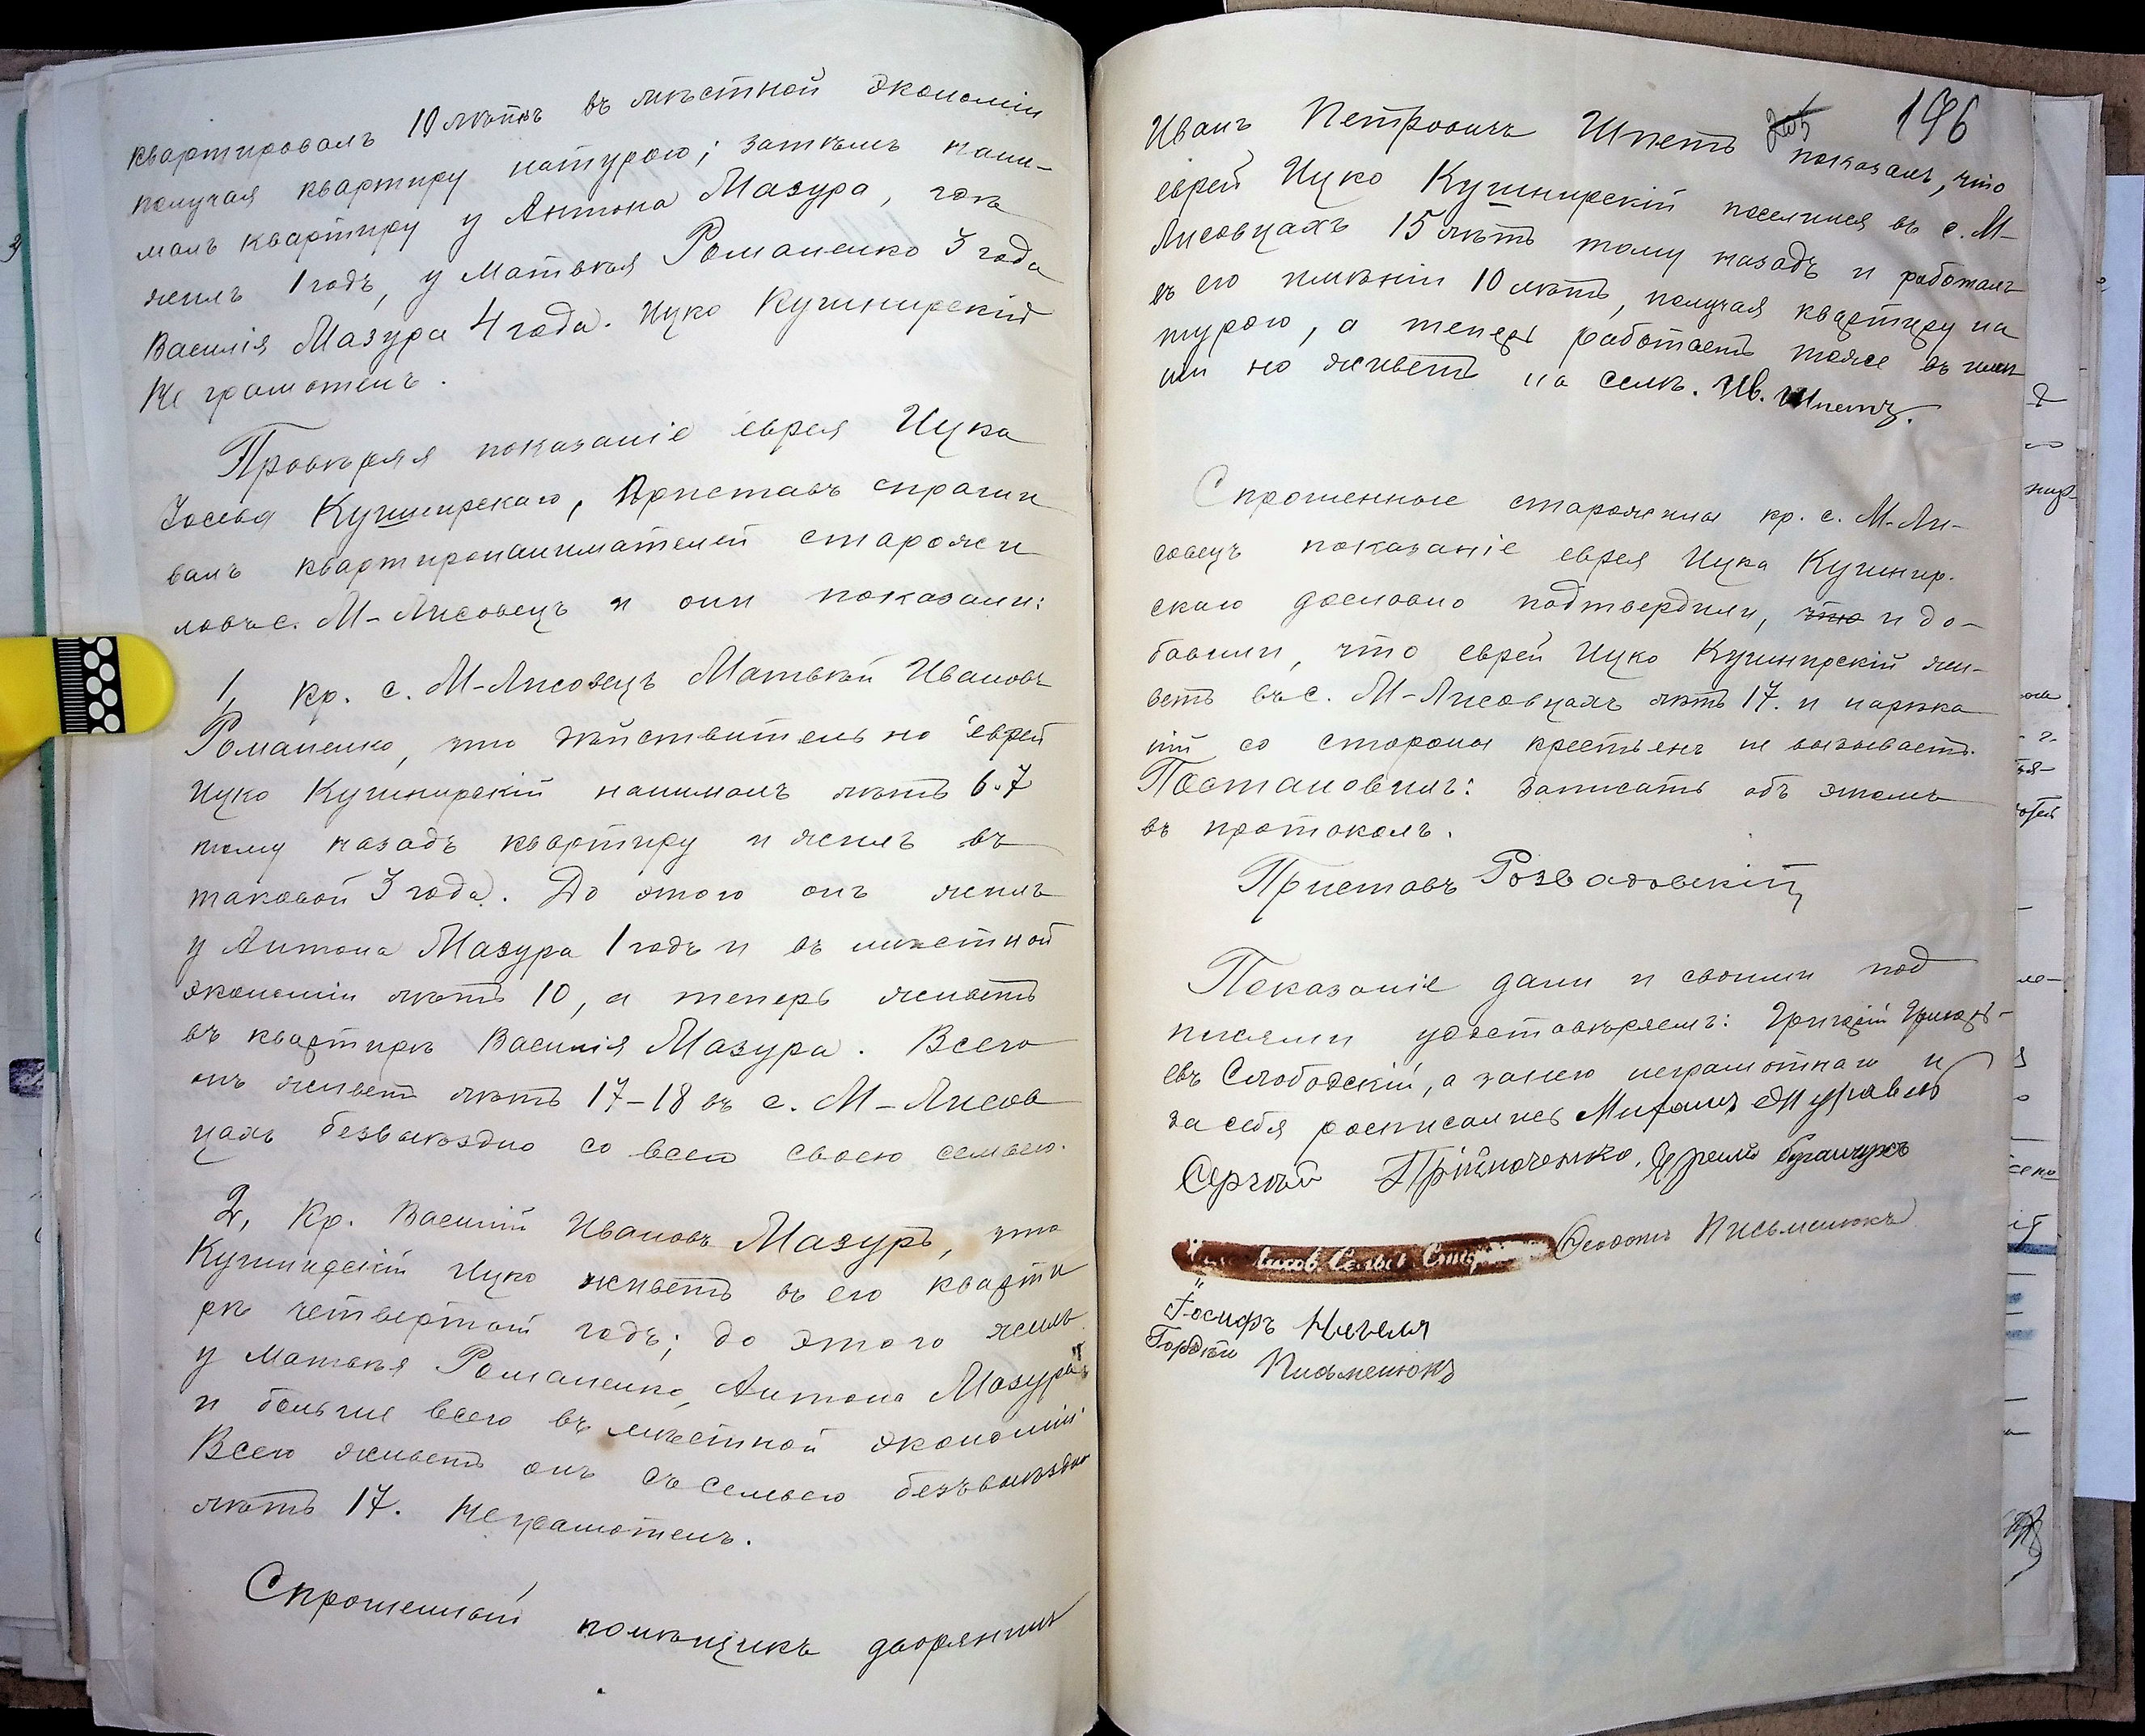 квартировалъ 10 лѣтъ въ мѣстной экономіи
получая квартиру натурою; затѣмъ нани-
малъ квартиру у Антона Мазура, гдѣ
жилъ 1 годъ, у Матвѣя Романенко 3 года
Василія Мазура 4 года. Ицко Кушнирскій
Не грамотенъ.
Провѣряя показаніе еврея Ицка
Іосева Кушнирскаго, Приставъ спраши
валъ квартиронанимателей старожи
ловъ с. М-Лисовецъ и они показали:
1, Кр. с. М-Лисовецъ Матвѣй Ивановъ
Романенко, что дѣйствительно еврей
Ицко Кушнирскій нанималъ лѣтъ 6-7
тому назадъ квартиру и жилъ въ
таковой 3 года. До этого онъ жилъ
у Антона Мазура 1 годъ и въ мѣстной
экономіи лѣтъ 10, а теперь живетъ
въ квартирѣ Василія Мазура. Всего
онъ живетъ лѣтъ 17-18 въ с. М-Лисов
цахъ безвыѣздно со всею своею семьею.
2, Кр. Василій Ивановъ Мазуръ, что
Кушнирскій Ицко живетъ въ его кварти
рѣ четвертый годъ; до этого жилъ
у Матвѣя Романенко, Антона Мазура
и больше всего въ мѣстной экономіи
Всего живетъ онъ съ семьею безъвыѣздно
лѣтъ 17. Неграмотенъ.
Спрошенный помѣщикъ дворянинъ
196
Иванъ Петровичъ Шпетъ показалъ, что
еврей Ицко Кушнирскій поселился въ с. М-
Лисовцахъ 15 лѣтъ тому назадъ и работалъ
въ его имѣніи 10 лѣтъ, получая квартиру на
турою, а теперь работаетъ тоже въ имѣ
ніи но живетъ на селѣ. Ив. Шпетъ.
Спрошенные старожилы кр. с. М-Ли-
совецъ показаніе еврея Ицка Кушнир-
скаго дословно подтвердили, что и до-
бавили, что еврей Ицко Кушнирскій жи-
ветъ въ с. М-Лисовцахъ лѣтъ 17. и нарѣка
ній со стороны крестьянъ не вызываетъ.
Постановилъ: записать объ этомъ
въ протоколъ.
Приставъ Розвадовскій
Показаніе дали и своими под
писями удостовѣряемъ: Григорій Григорь-
евъ Слободскій, а за него неграмотнаго и
за себя росписался Михаилъ Журавель
Сергѣй
Ѳеодотъ Письменюкъ
Іосифъ
Гордѣй
Письменюкъ